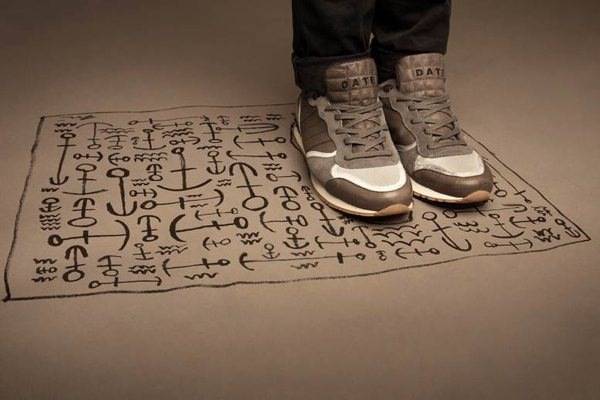 DATE
DATE